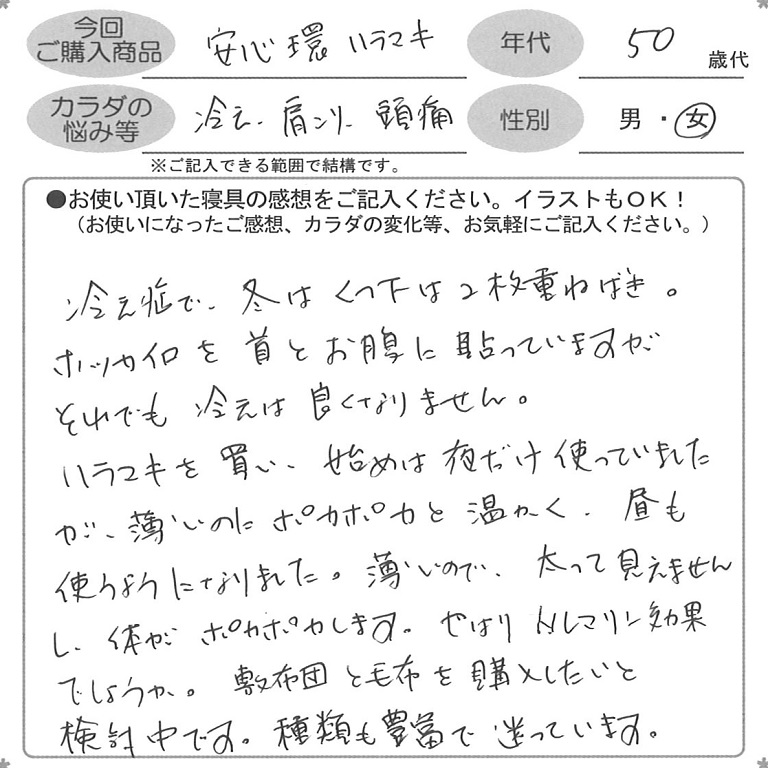 今回
ご購入商品
安心環 ハラマキ
年代
50
歳代
カラダの
悩み等
冷え、肩こり、頭痛
性別
男・女
※ご記入できる範囲で結構です。
●お使い頂いた寝具の感想をご記入ください。イラストもOK!
(お使いになったご感想、カラダの変化等、お気軽にご記入ください。)
冷え症で、冬はくつ下は2枚重ねばき。
ホッカイロを首とお腹に貼っていますが
それでも冷えは良くなりません。
ハラマキを買い、始めは夜だけ使っていました
が、薄いのにポカポカと温かく、昼も
使うようになりました。薄いので、太って見えません
し、体がポカポカします。やはりトルマリン効果
でしょうか。敷布団と毛布を購入したいと
検討中です。種類も豊富で迷っています。